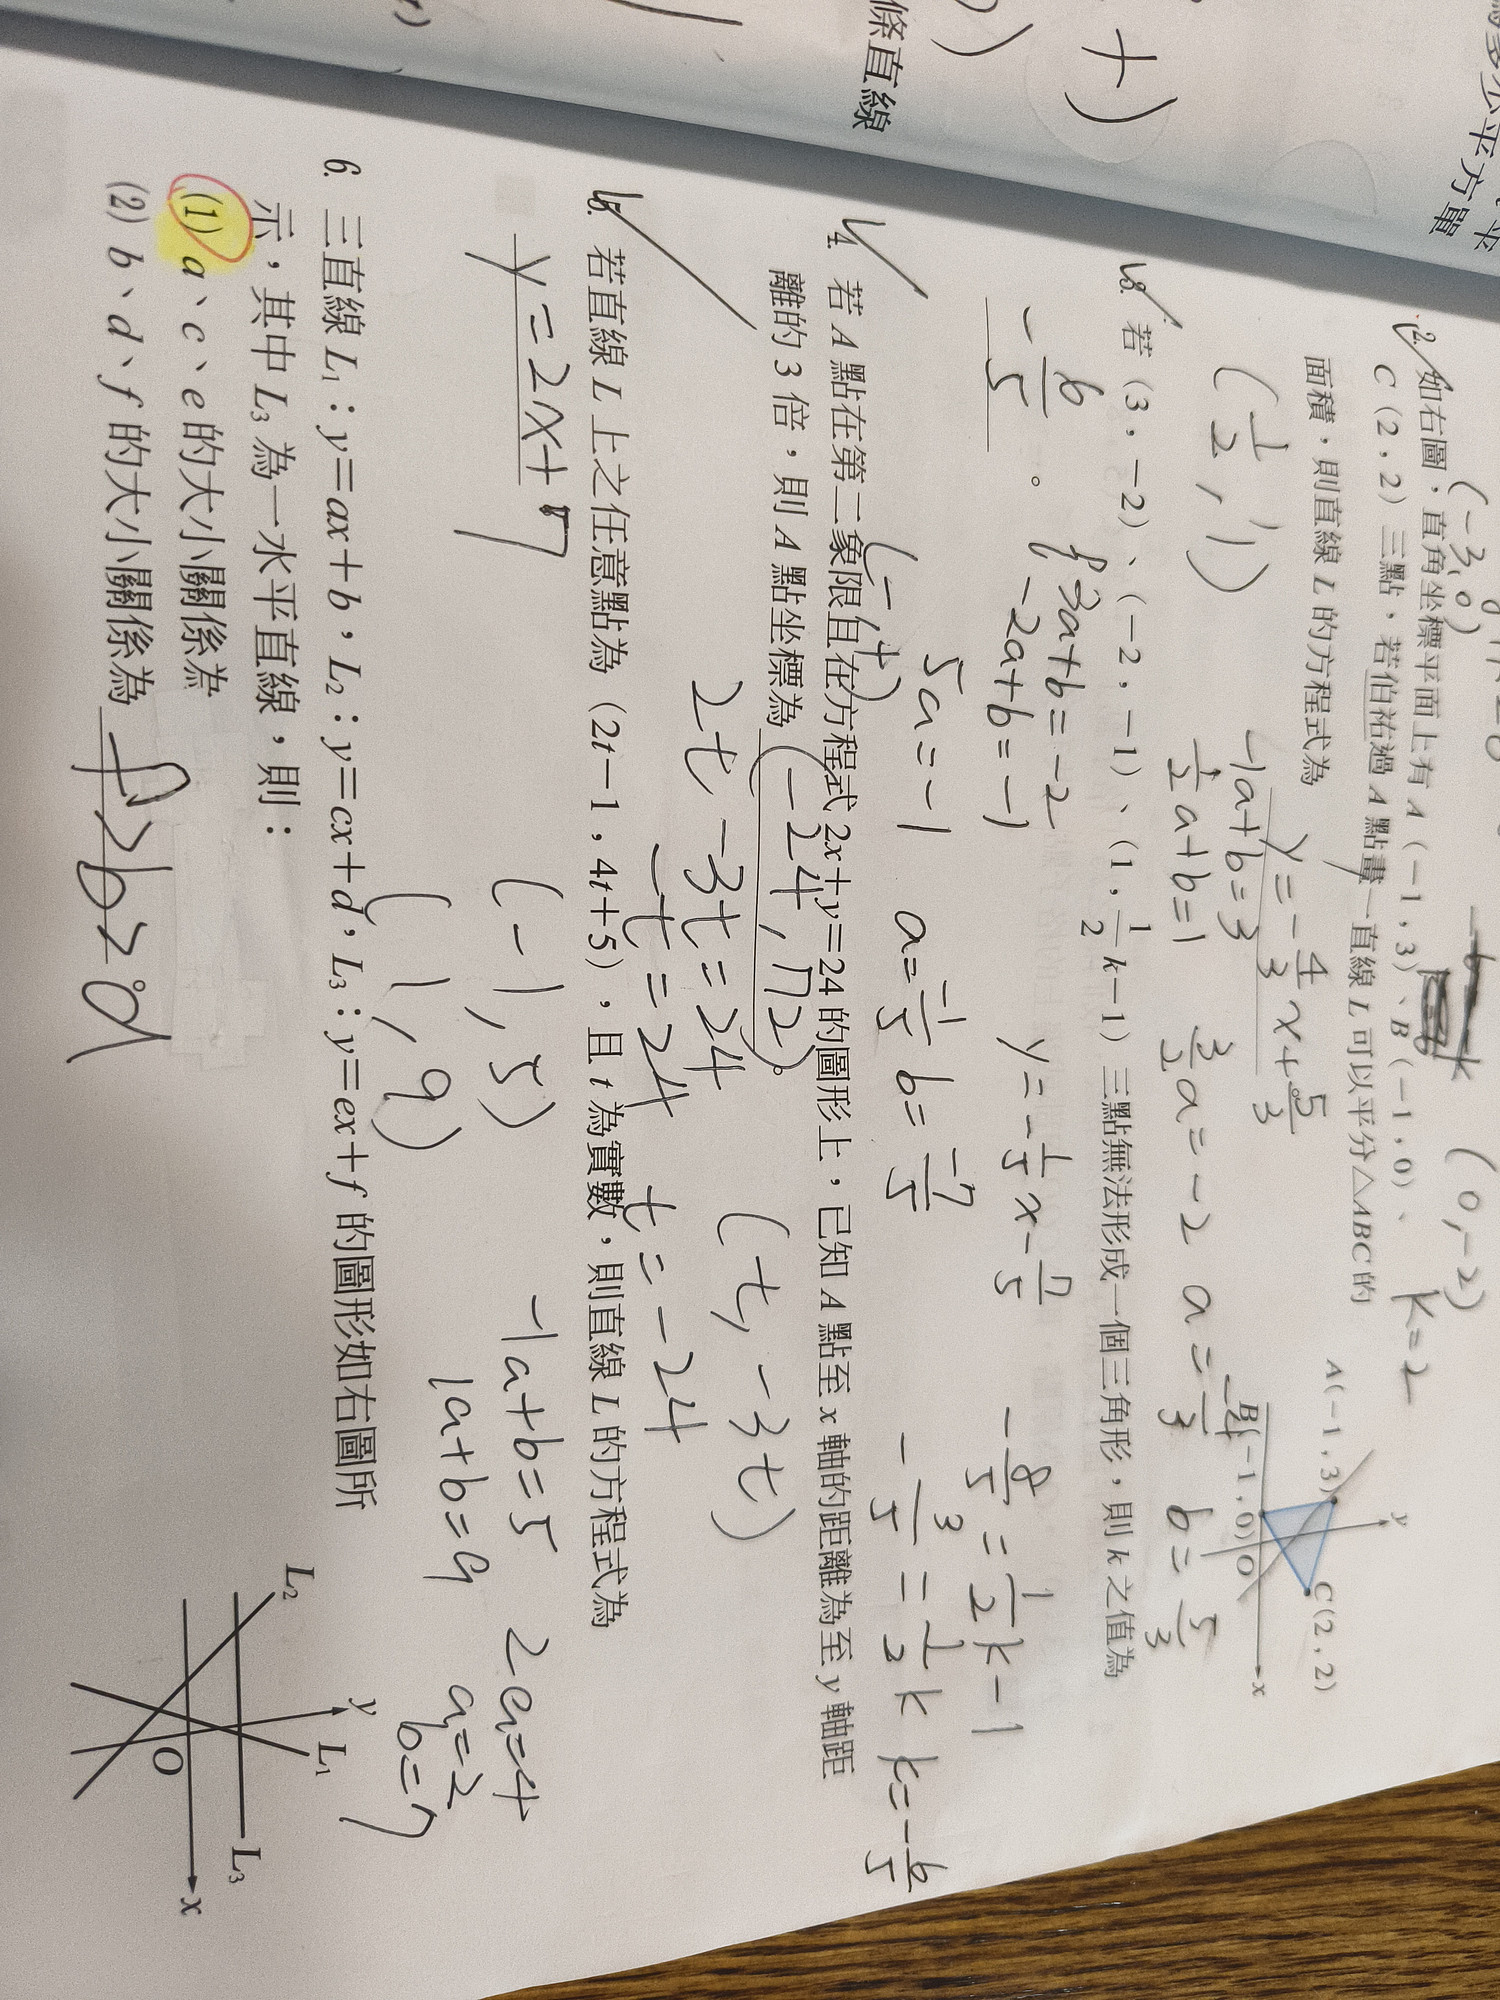 條直線
+ )
(-3, 0)
(0, -2)
k=2
2. 如右圖，直角坐標平面上有 A (-1，3)、B (-1，0)、
C (2，2) 三點，若伯祐過 A 點畫一直線 L 可以平分△ABC 的
面積，則直線 L 的方程式為
y=-4/3x+5/3
A(-1，3)
C(2，2)
B(-1，0)
O
x
y
(1/2, 1)
-1a+b=3
1/2a+b=1
3/2a=-2
b=5/3
3. 若 (3，-2)、(-2，-1)、(1，1/2k-1) 三點無法形成一個三角形，則 k 之值為
-6/5 。
3a+b=-2
-2a+b=-1
5a=-1
a=-1/5
b=-7/5
y=-1/5x-7/5
-8/5=1/2k-1
-3/5=1/2k
k=-6/5
4. 若 A 點在第二象限且在方程式 2x+y=24 的圖形上，已知 A 點至 x 軸的距離為至 y 軸距
離的 3 倍，則 A 點坐標為 (-24, 72)。
(-, +)
(t, -3t)
2t-3t=24
-t=24
t=-24
5. 若直線 L 上之任意點為 (2t-1，4t+5)，且 t 為實數，則直線 L 的方程式為
y=2x+7
(-1, 5)
(1, 9)
-1a+b=5
1a+b=9
2a=4
a=2
b=7
6. 三直線 L1：y=ax+b，L2：y=cx+d，L3：y=ex+f 的圖形如右圖所
示，其中 L3 為一水平直線，則：
(1) a、c、e 的大小關係為
(2) b、d、f 的大小關係為 f>b>d
L2
y
L1
L3
O
x